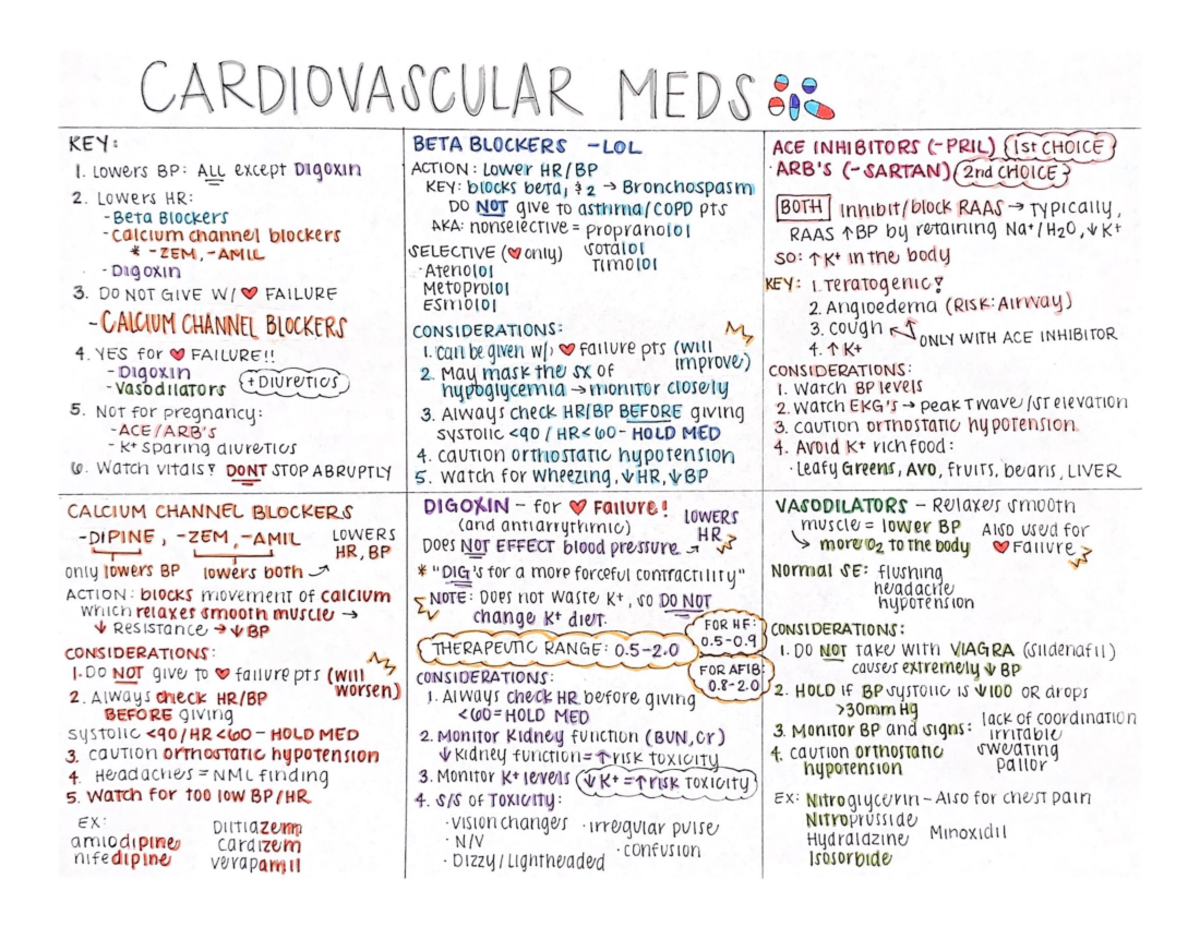 CARDIOVASCULAR MEDS
KEY:
1. Lowers BP: ALL except Digoxin
2. Lowers HR:
-Beta Blockers
-Calcium channel blockers
* -ZEM, -AMIL
- Digoxin
3. DO NOT GIVE W/ ♥ FAILURE
-CALCIUM CHANNEL BLOCKERS
4. YES for ♥ FAILURE!!
-Digoxin
-Vasodilators +Diuretics
5. Not for pregnancy:
-ACE/ARB's
- K+ sparing diuretics
6. Watch vitals! DONT STOP ABRUPTLY
BETA BLOCKERS -LOL
ACTION: Lower HR/BP
KEY: blocks beta, & 2 → Bronchospasm
DO NOT give to asthma/COPD pts
AKA: nonselective = propranolol
sotalol
Timolol
SELECTIVE (♥ only)
·Atenolol
Metoprolol
Esmolol
CONSIDERATIONS:
1. Can be given w/ ♥ failure pts (will
improve)
2. May mask the sx of
hypoglycemia → monitor closely
3. Always check HR/BP BEFORE giving
systolic <90 / HR<60 - HOLD MED
4. caution orthostatic hypotension
5. watch for wheezing, ↓HR, ↓BP
ACE INHIBITORS (-PRIL) 1st CHOICE
·ARB'S (-SARTAN) 2nd CHOICE
BOTH Inhibit/block RAAS → Typically,
RAAS ↑BP by retaining Na+/H2O, ↓K+
SO: ↑K+ in the body
KEY: 1. Teratogenic!
2. Angioedema (RISK: Airway)
3. cough ONLY WITH ACE INHIBITOR
4. ↑K+
CONSIDERATIONS:
1. Watch BP levels
2. Watch EKG's → peak T wave/ST elevation
3. caution orthostatic hypotension
4. Avoid K+ rich food:
·Leafy Greens, AVO, fruits, beans, LIVER
CALCIUM CHANNEL BLOCKERS
-DIPINE, -ZEM, -AMIL LOWERS
HR, BP
only lowers BP lowers both
ACTION: blocks movement of calcium
which relaxes smooth muscle →
↓ Resistance → ↓BP
CONSIDERATIONS:
1. DO NOT give to ♥ failure pts (will
worsen)
2. Always check HR/BP
BEFORE giving
systolic <90/HR<60 - HOLD MED
3. caution orthostatic hypotension
4. Headaches = NML finding
5. Watch for too low BP/HR
EX:
amlodipine
nifedipine
Diltiazem
cardizem
verapamil
DIGOXIN - for ♥ Failure!
(and antiarrythmic)
LOWERS
HR
Does NOT EFFECT blood pressure
* "DIG's for a more forceful contractility"
NOTE: Does not waste K+, so DO NOT
change K+ diet.
THERAPEUTIC RANGE: 0.5-2.0
FOR HF:
0.5-0.9
FOR AFIB:
0.8-2.0
CONSIDERATIONS:
1. Always check HR before giving
<60 = HOLD MED
2. Monitor Kidney function (BUN, Cr)
↓Kidney function = ↑risk toxicity
3. Monitor K+ levels (↓K+ = ↑risk toxicity)
4. S/S of TOXICITY:
·Vision changes ·irregular pulse
·N/V ·confusion
·Dizzy/Lightheaded
VASODILATORS - Relaxes smooth
muscle = lower BP
more O2 to the body
Also used for
♥ Failure
Normal SE: flushing
headache
hypotension
CONSIDERATIONS:
1. DO NOT take with VIAGRA (Sildenafil)
causes extremely ↓ BP
2. HOLD if BP systolic is ↓100 OR drops
>30mm Hg
3. Monitor BP and signs: lack of coordination
irritable
sweating
pallor
4. caution orthostatic
hypotension
EX: Nitroglycerin - Also for chest pain
Nitroprusside
Hydralazine Minoxidil
Isosorbide